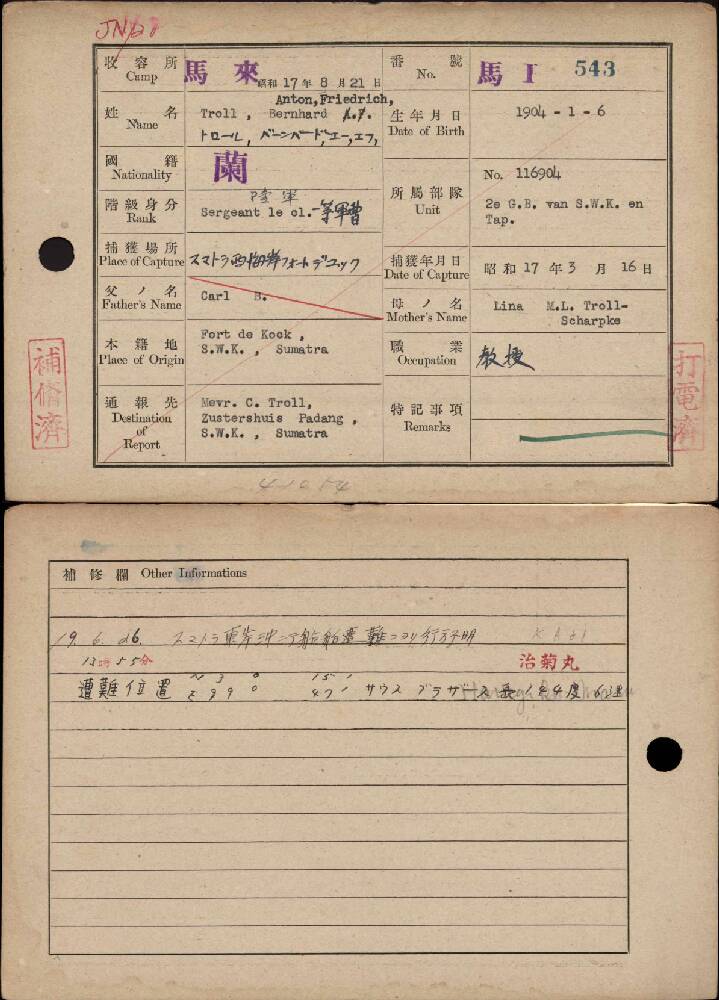 收容所 Camp 馬來 昭和17年8月21日
番號 No. 馬 I 543
姓名 Name Anton,Friedrich,
Troll, Bernhard
トロール, バーンハード,エー,エフ,
生年月日 Date of Birth 1904 - 1 - 6
國籍 Nationality 蘭
階級身分 Rank 陸軍
Sergeant 1e cl. 一等軍曹
所屬部隊 Unit No. 116904
2e G.B. van S.W.K. en
Tap.
捕獲場所 Place of Capture スマトラ西海岸フォートデコック
捕獲年月日 Date of Capture 昭和17年3月16日
父ノ名 Father's Name Carl B.
母ノ名 Mother's Name Lina M.L. Troll-
Scharpke
本籍地 Place of Origin Fort de Kock,
S.W.K., Sumatra
職業 Occupation 教授
通報先 Destination of Report Mevr. C. Troll,
Zustershuis Padang,
S.W.K., Sumatra
特記事項 Remarks
補修濟
打電濟
補修欄 Other Informations
19. 6. 26. スマトラ東岸沖ニテ船舶遭難ニヨリ行方不明
13時55分 治菊丸
遭難位置 サウスブラザース